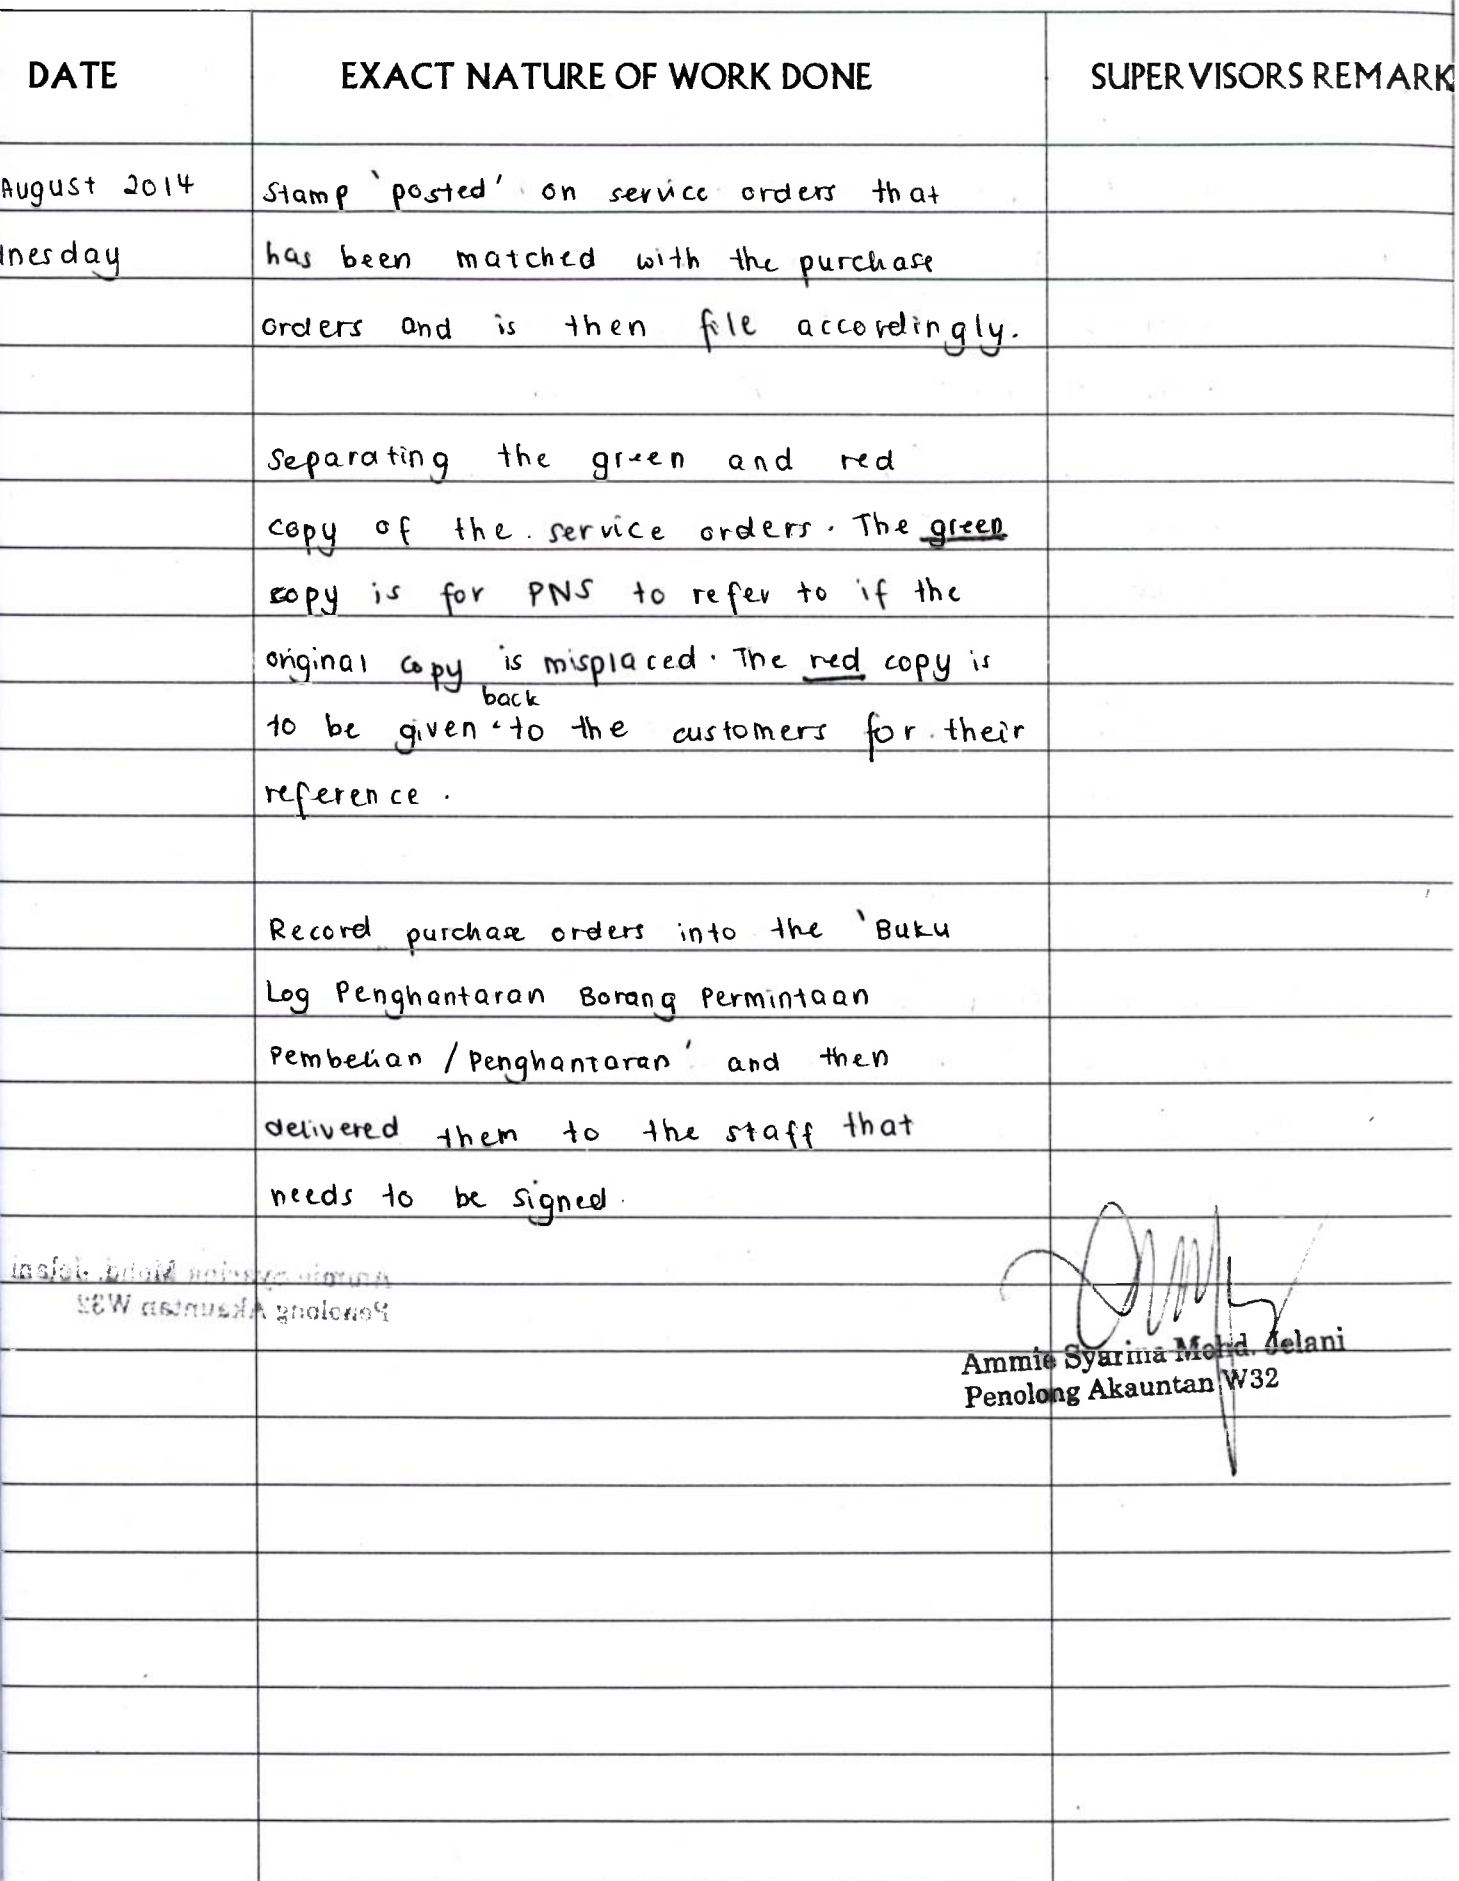 DATE EXACT NATURE OF WORK DONE SUPERVISORS REMARK
August 2014 Stamp 'posted' on service orders that
nesday has been matched with the purchase
orders and is then file accordingly.
Separating the green and red
copy of the service orders. The green
copy is for PNS to refer to if the
original copy is misplaced. The red copy is
back
to be given to the customers for their
reference.
Record purchase orders into the 'Buku
Log Penghantaran Borang Permintaan
Pembelian / Penghantaran' and then
delivered them to the staff that
needs to be signed.
Ammie Syarina Mohd. Jelani
Penolong Akauntan W32
Ammie Syarina Mohd. Jelani
Penolong Akauntan W32